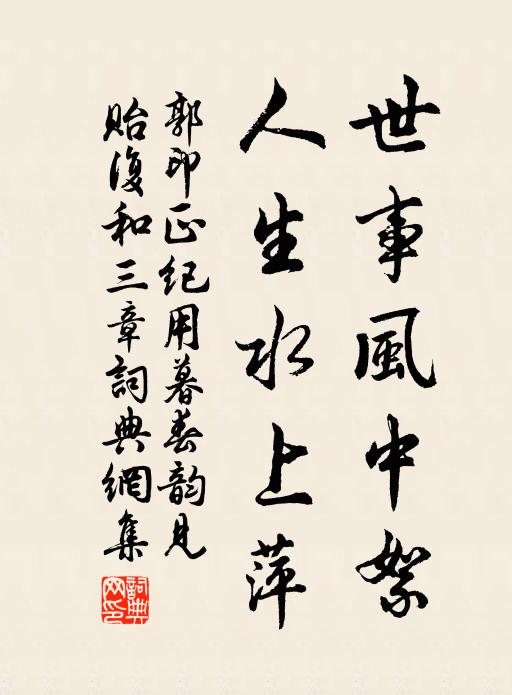 世事風中絮
人生水上萍
郭印正紀用暮春韵見
貽復和三章詞典網集
詞典网印